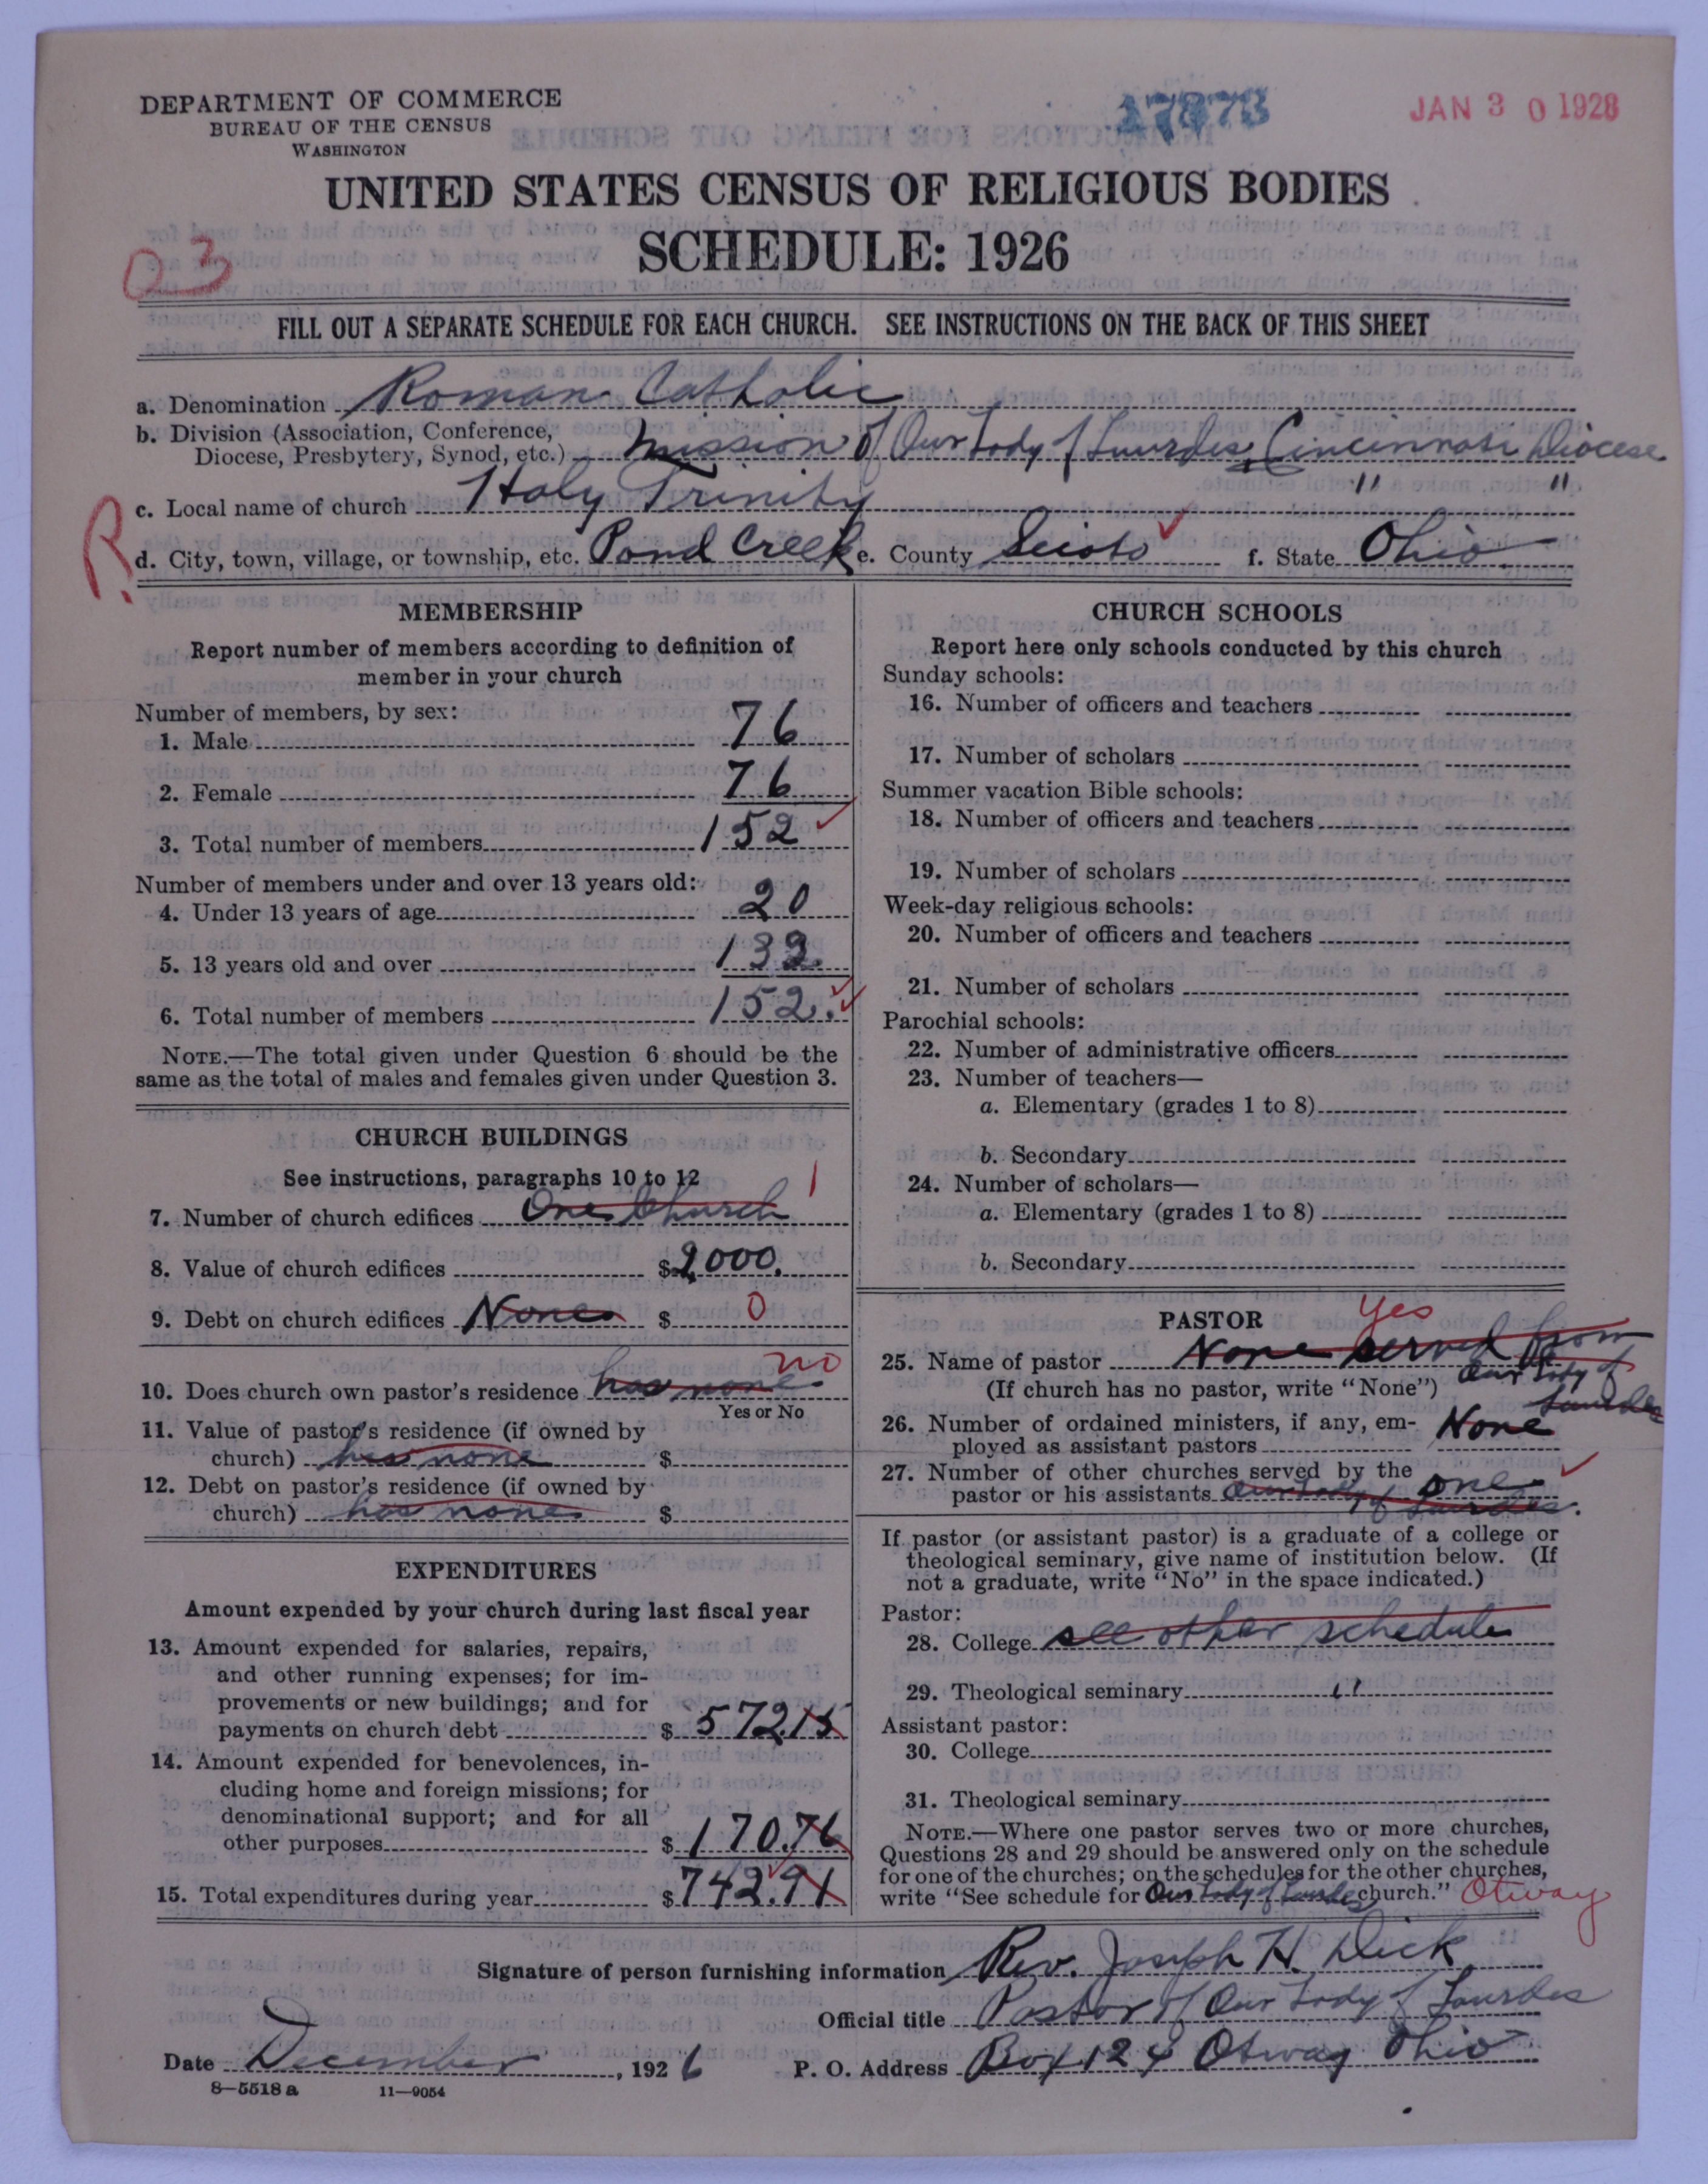 DEPARTMENT OF COMMERCE
BUREAU OF THE CENSUS
WASHINGTON
17873
JAN 30 1928
UNITED STATES CENSUS OF RELIGIOUS BODIES
SCHEDULE: 1926
03
FILL OUT A SEPARATE SCHEDULE FOR EACH CHURCH. SEE INSTRUCTIONS ON THE BACK OF THIS SHEET
a. Denomination Roman Catholic
b. Division (Association, Conference,
Diocese, Presbytery, Synod, etc.) Mission of Our Lady of Lourdes Cincinnati Diocese
c. Local name of church Holy Trinity " "
R.
d. City, town, village, or township, etc. Pond Creek e. County Scioto f. State Ohio
MEMBERSHIP
Report number of members according to definition of
member in your church
Number of members, by sex:
1. Male 76
2. Female 76
3. Total number of members 152
Number of members under and over 13 years old:
4. Under 13 years of age 20
5. 13 years old and over 132
6. Total number of members 152
NOTE.—The total given under Question 6 should be the
same as the total of males and females given under Question 3.
CHURCH BUILDINGS
See instructions, paragraphs 10 to 12
7. Number of church edifices One Church 1
8. Value of church edifices $2000.
9. Debt on church edifices None $ 0
10. Does church own pastor's residence has none no
Yes or No
11. Value of pastor's residence (if owned by
church) has none $
12. Debt on pastor's residence (if owned by
church) has none $
EXPENDITURES
Amount expended by your church during last fiscal year
13. Amount expended for salaries, repairs,
and other running expenses; for im-
provements or new buildings; and for
payments on church debt $ 572.15
14. Amount expended for benevolences, in-
cluding home and foreign missions; for
denominational support; and for all
other purposes $ 170.76
15. Total expenditures during year $ 742.91
CHURCH SCHOOLS
Report here only schools conducted by this church
Sunday schools:
16. Number of officers and teachers
17. Number of scholars
Summer vacation Bible schools:
18. Number of officers and teachers
19. Number of scholars
Week-day religious schools:
20. Number of officers and teachers
21. Number of scholars
Parochial schools:
22. Number of administrative officers
23. Number of teachers—
a. Elementary (grades 1 to 8)
b. Secondary
24. Number of scholars—
a. Elementary (grades 1 to 8)
b. Secondary
PASTOR
yes
25. Name of pastor None served from
(If church has no pastor, write "None") Our Lady of Lourdes
26. Number of ordained ministers, if any, em-
ployed as assistant pastors None
27. Number of other churches served by the
pastor or his assistants Our Lady of Lourdes. one
If pastor (or assistant pastor) is a graduate of a college or
theological seminary, give name of institution below. (If
not a graduate, write "No" in the space indicated.)
Pastor:
28. College see other schedule
29. Theological seminary "
Assistant pastor:
30. College
31. Theological seminary
NOTE.—Where one pastor serves two or more churches,
Questions 28 and 29 should be answered only on the schedule
for one of the churches; on the schedules for the other churches,
write "See schedule for Our Lady of Lourdes church." Otway
Signature of person furnishing information Rev. Joseph H. Dick
Official title Pastor of Our Lady of Lourdes
Date December, 1926 P. O. Address Box 124 Otway Ohio
8—5518 a 11—9054